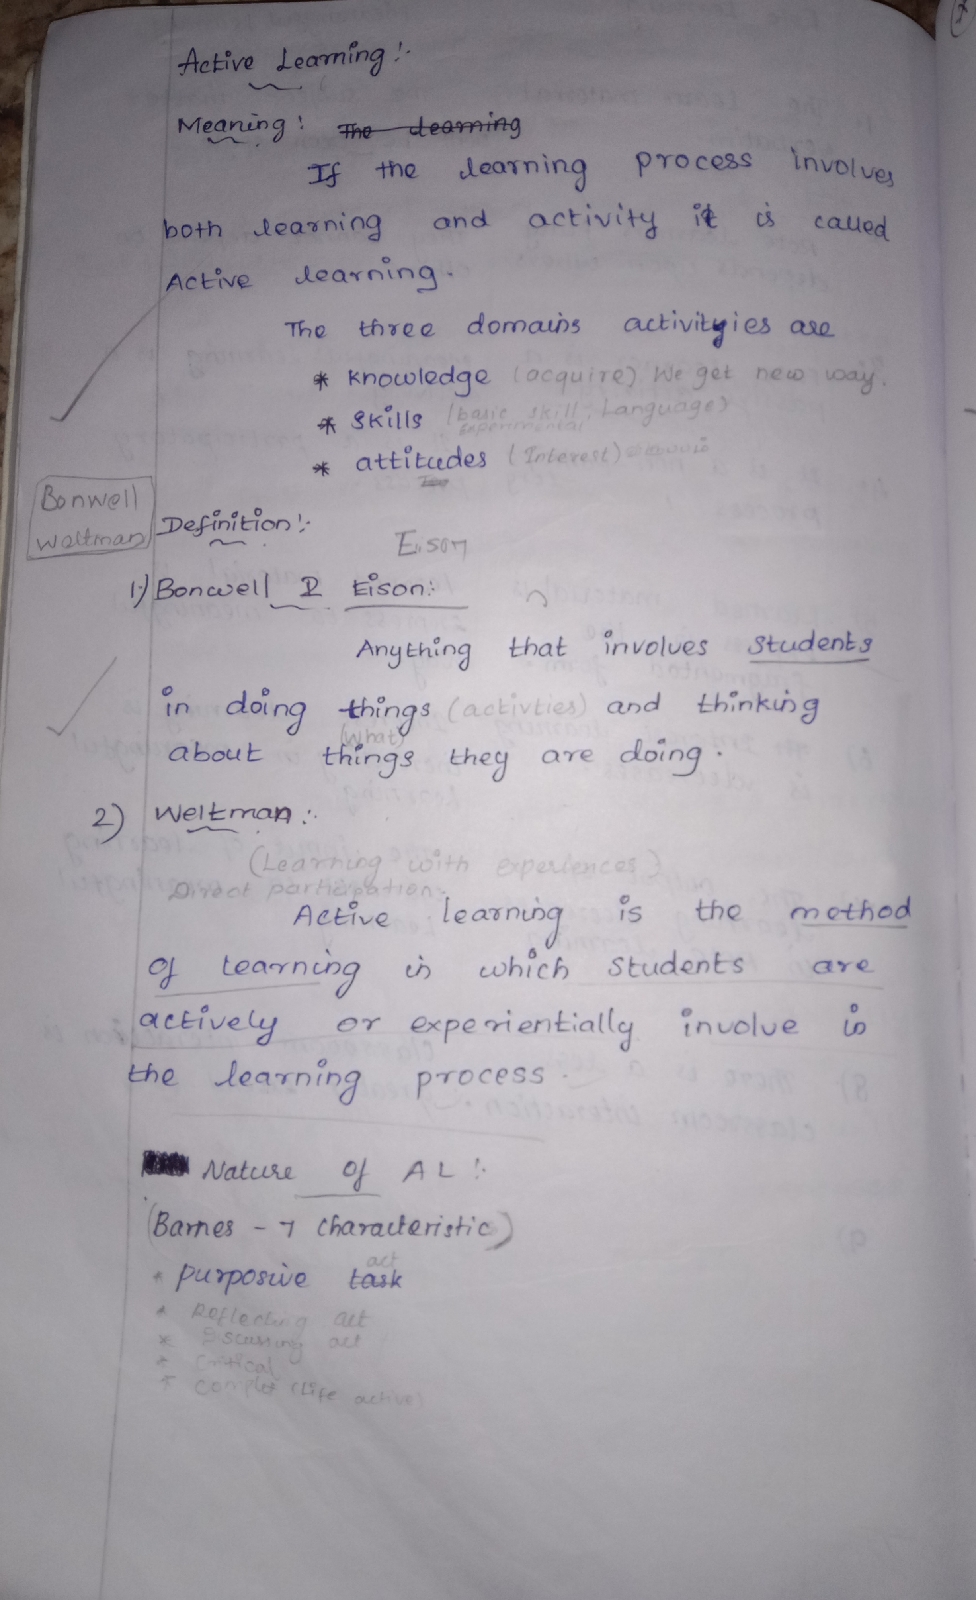 Active Learning :-
Meaning : The learning
If the learning process involves
both learning and activity it is called
Active learning.
The three domains activityies are
* knowledge (acquire) We get new way.
* Skills (basic skill, Language)
experimental
* attitudes (Interest)
Bonwell
Weltman
Definition :-
Eison
1) Bonwell & Eison :-
Anything that involves students
in doing things (activties) and thinking
(what)
about things they are doing.
2) Weltman :-
(Learning with experiences)
Direct participation.
Active learning is the method
of learning in which students are
actively or experientially involve in
the learning process.
Nature of AL :-
(Barnes - 7 characteristic)
act
* purposive task
* Reflecting act
* act
* Critical
* (Life active)